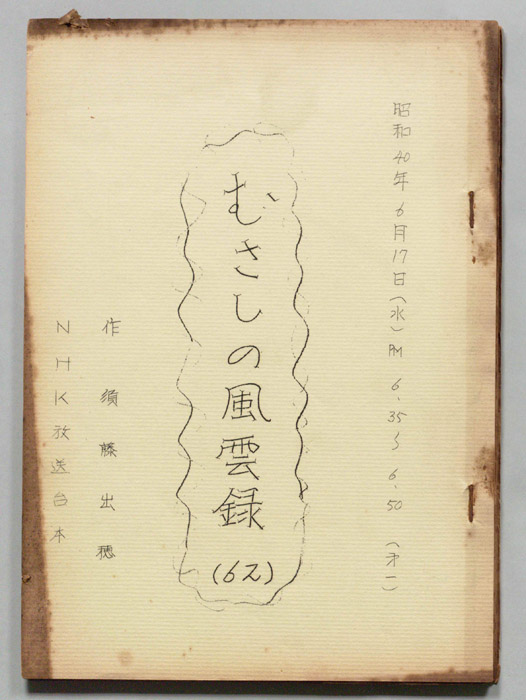 昭和40年6月17日(水)PM 6.35〜6.50 (才一)
むさしの風雲録
(62)
作 須藤出穂
NHK放送台本